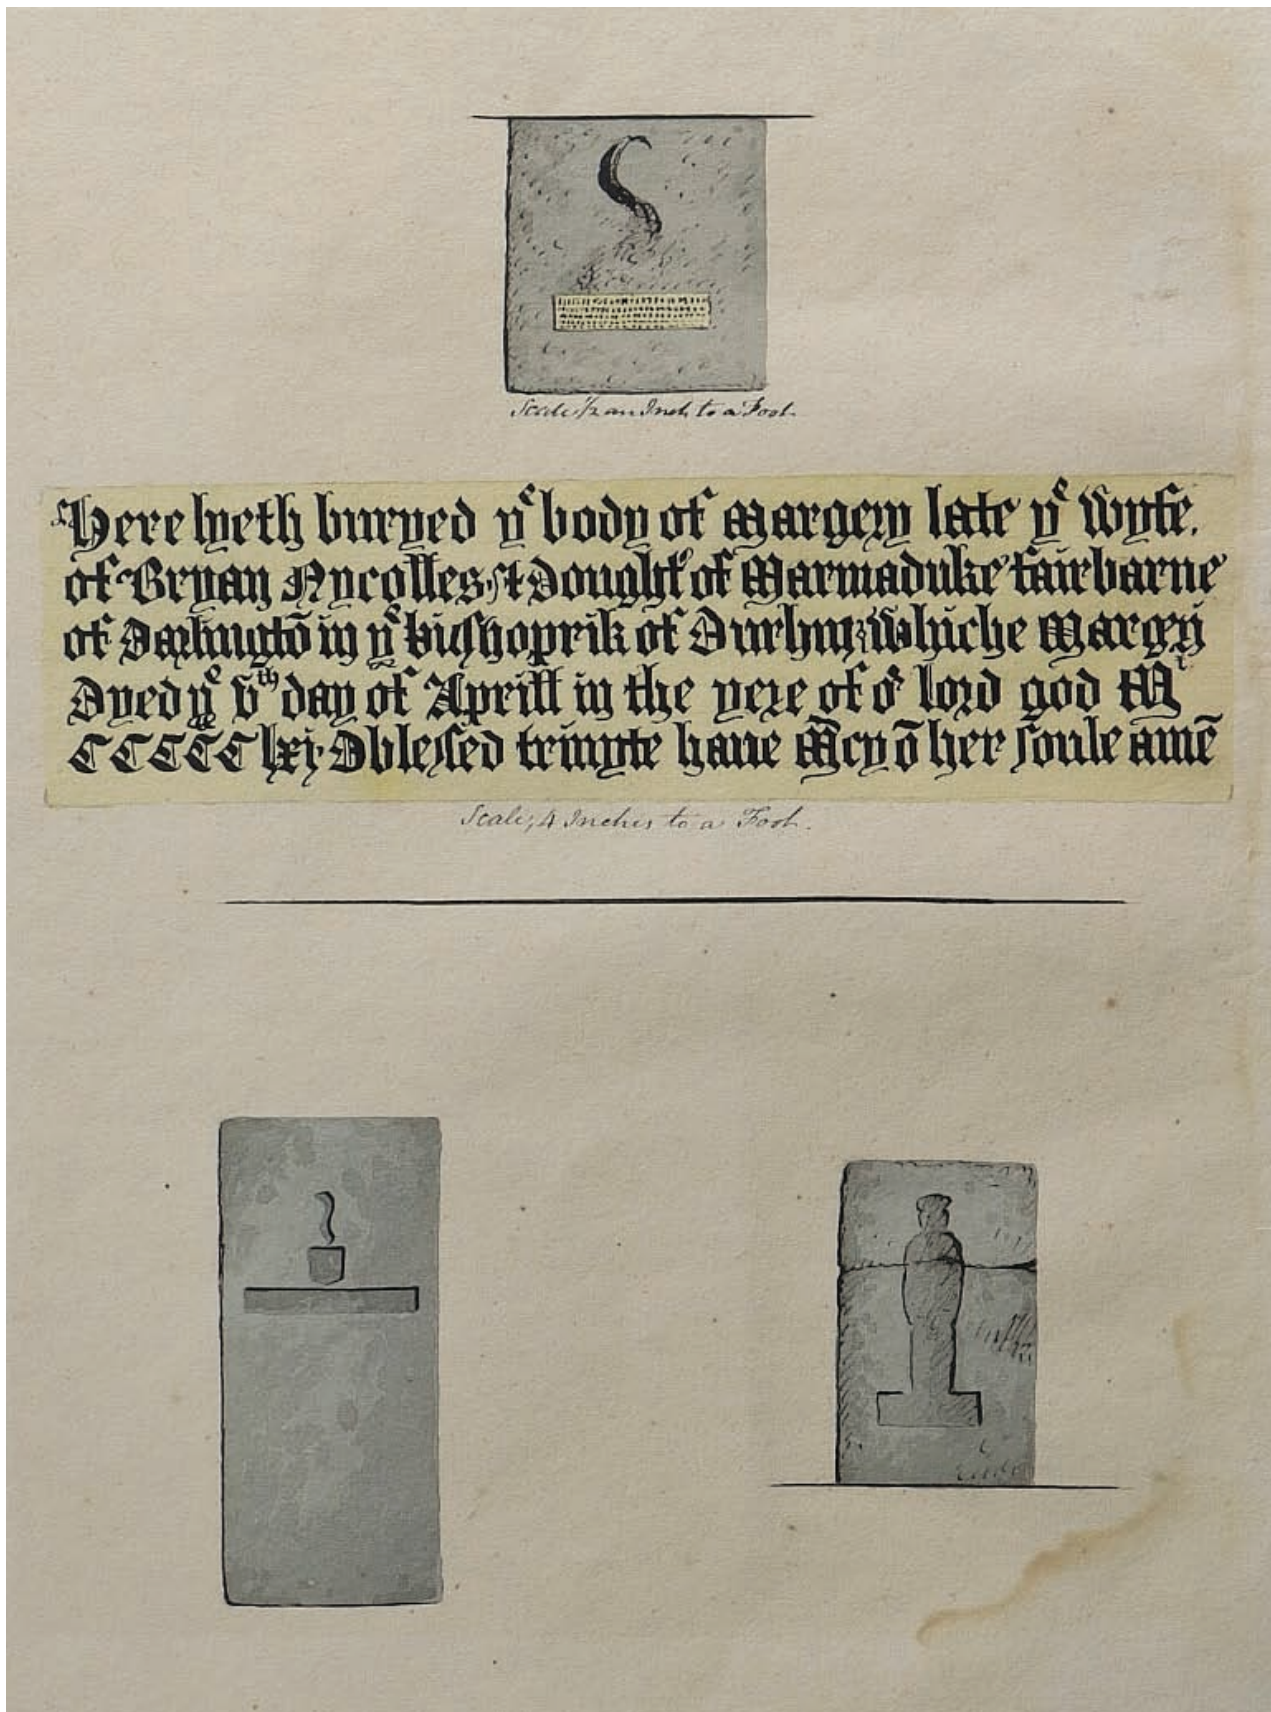 Scale 1/2 an Inch to a Foot.
Here lyeth buryed yͤ body of Margery late yͤ Wyfe.
of Bryan Nycolles, & Doughtͬ of Marmaduke fairbarne
of Darlingtō in yͤ bishoprik of Durhm, Whiche Margery
Dyed yͤ vth day of Aprill in the yere of oͬ lord god M
CCCCC lxj, O blessed trinyte haue Mcy ō her soule amē
Scale, 4 Inches to a Foot.